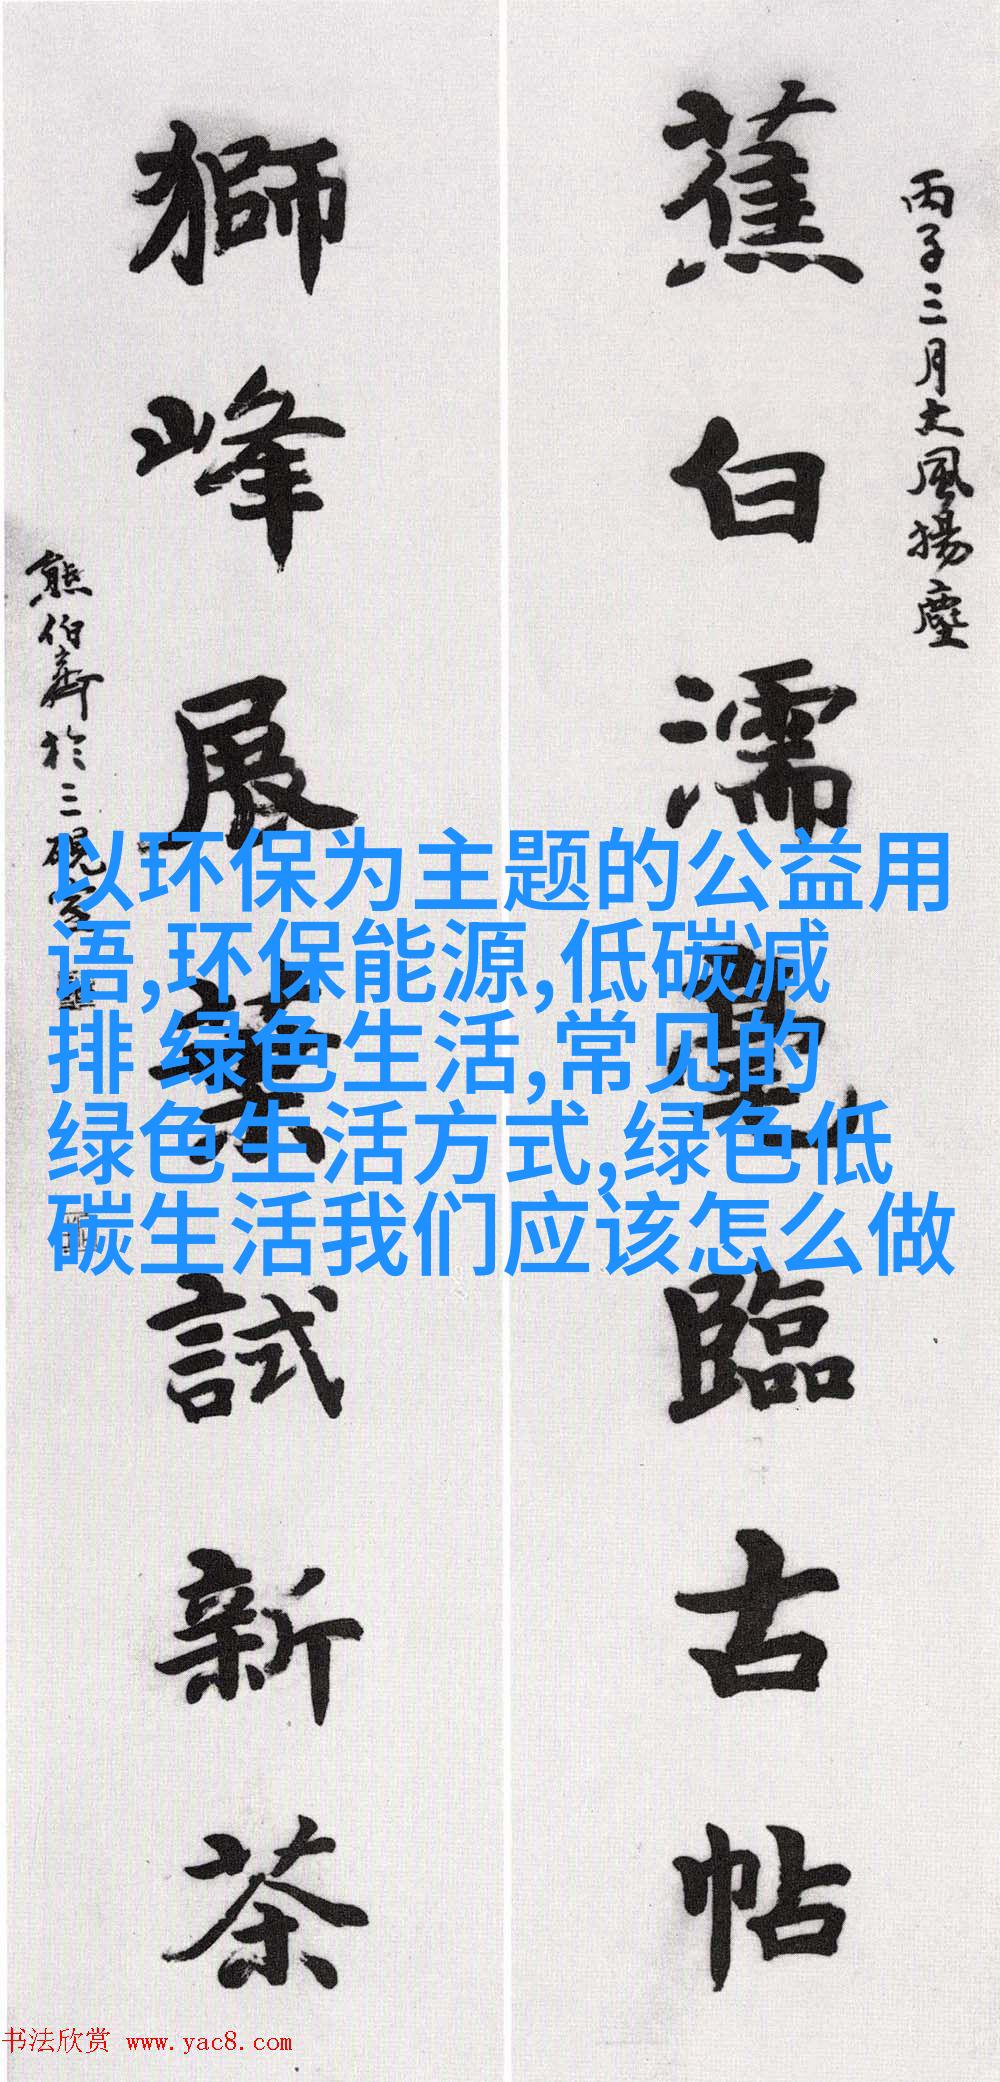 丙子三月大風揚塵
蕉白濡墨臨古帖
獅峰展葉試新茶
熊伯齊於三硯室
以环保为主题的公益用
语,环保能源,低碳减
排 绿色生活,常见的
绿色生活方式,绿色低
碳生活我们应该怎么做
书法欣赏 www.yac8.com